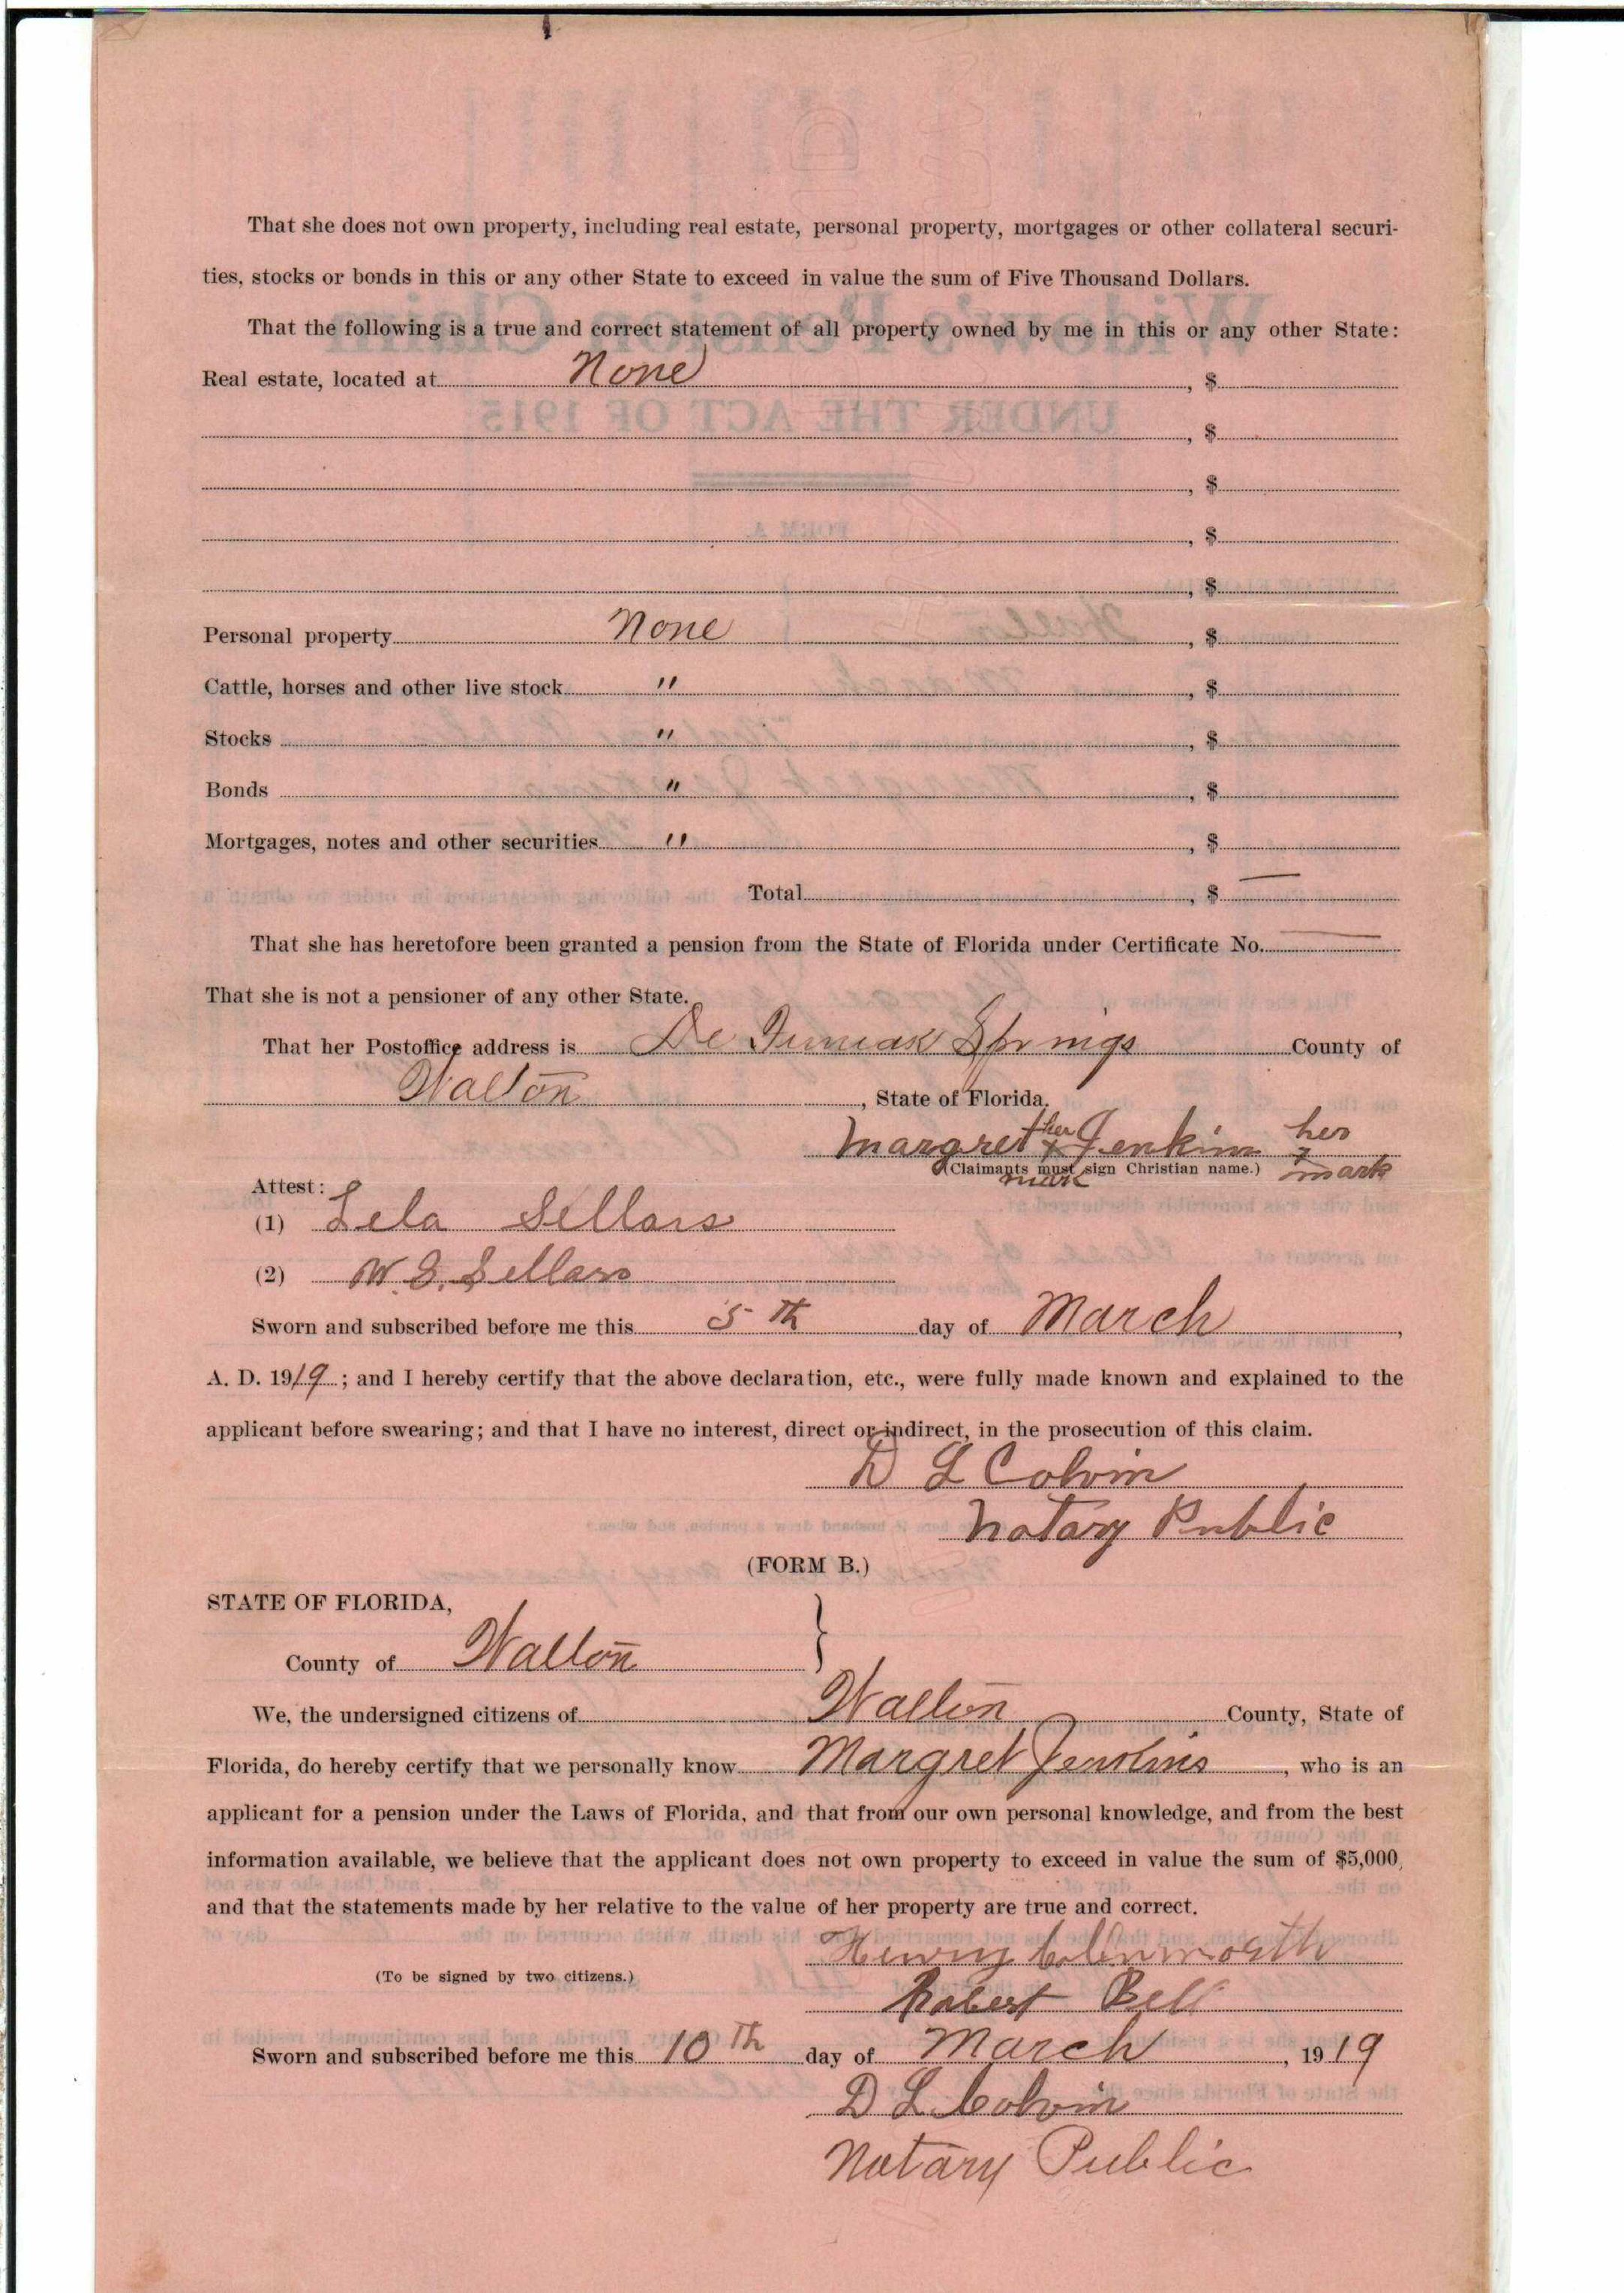 That she does not own property, including real estate, personal property, mortgages or other collateral securi-
ties, stocks or bonds in this or any other State to exceed in value the sum of Five Thousand Dollars.
That the following is a true and correct statement of all property owned by me in this or any other State:
Real estate, located at None , $
, $
, $
, $
, $
Personal property None , $
Cattle, horses and other live stock " , $
Stocks " , $
Bonds " , $
Mortgages, notes and other securities " , $
Total , $ —
That she has heretofore been granted a pension from the State of Florida under Certificate No. —
That she is not a pensioner of any other State.
That her Postoffice address is De Funiak Springs County of
Walton , State of Florida.
her her
Margret x Jenkins x
(Claimants must sign Christian name.)
mark mark
Attest:
(1) Lela Sellars
(2) W. S. Sellars
Sworn and subscribed before me this 5th day of March ,
A. D. 1919; and I hereby certify that the above declaration, etc., were fully made known and explained to the
applicant before swearing; and that I have no interest, direct or indirect, in the prosecution of this claim.
D L Colvin
Notary Public
(FORM B.)
STATE OF FLORIDA,
County of Walton }
We, the undersigned citizens of Walton County, State of
Florida, do hereby certify that we personally know Margret Jenkins , who is an
applicant for a pension under the Laws of Florida, and that from our own personal knowledge, and from the best
information available, we believe that the applicant does not own property to exceed in value the sum of $5,000,
and that the statements made by her relative to the value of her property are true and correct.
Henry
(To be signed by two citizens.)
Robert Bell
Sworn and subscribed before me this 10th day of March , 1919
D L Colvin
Notary Public